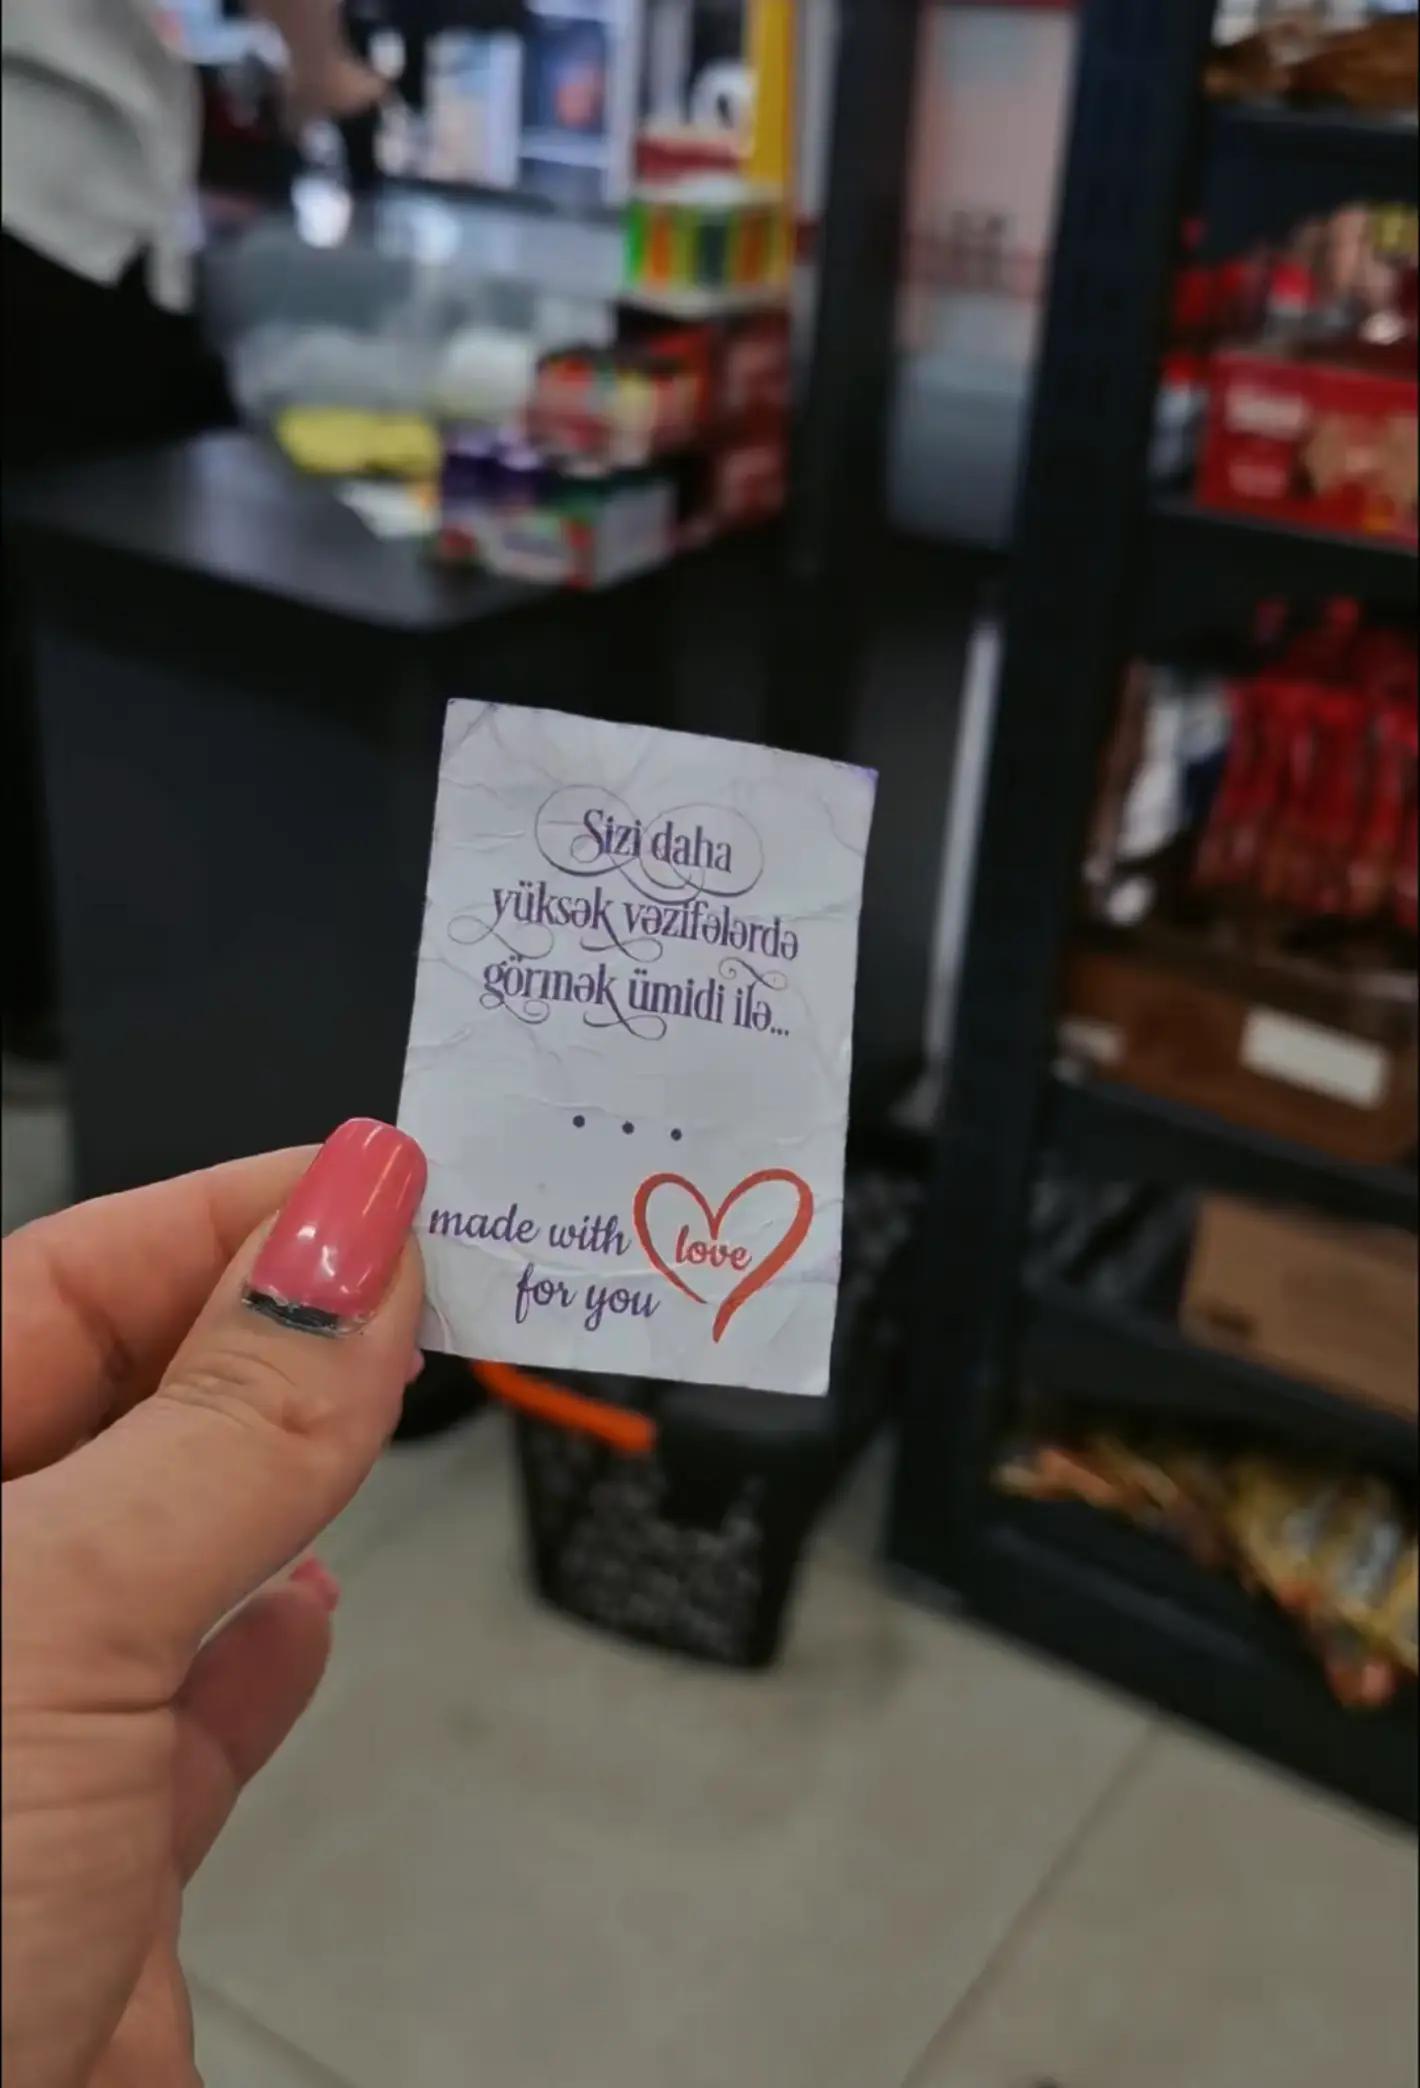 Sizi daha
yüksək vəzifələrdə
görmək ümidi ilə...
• • •
made with love
for you